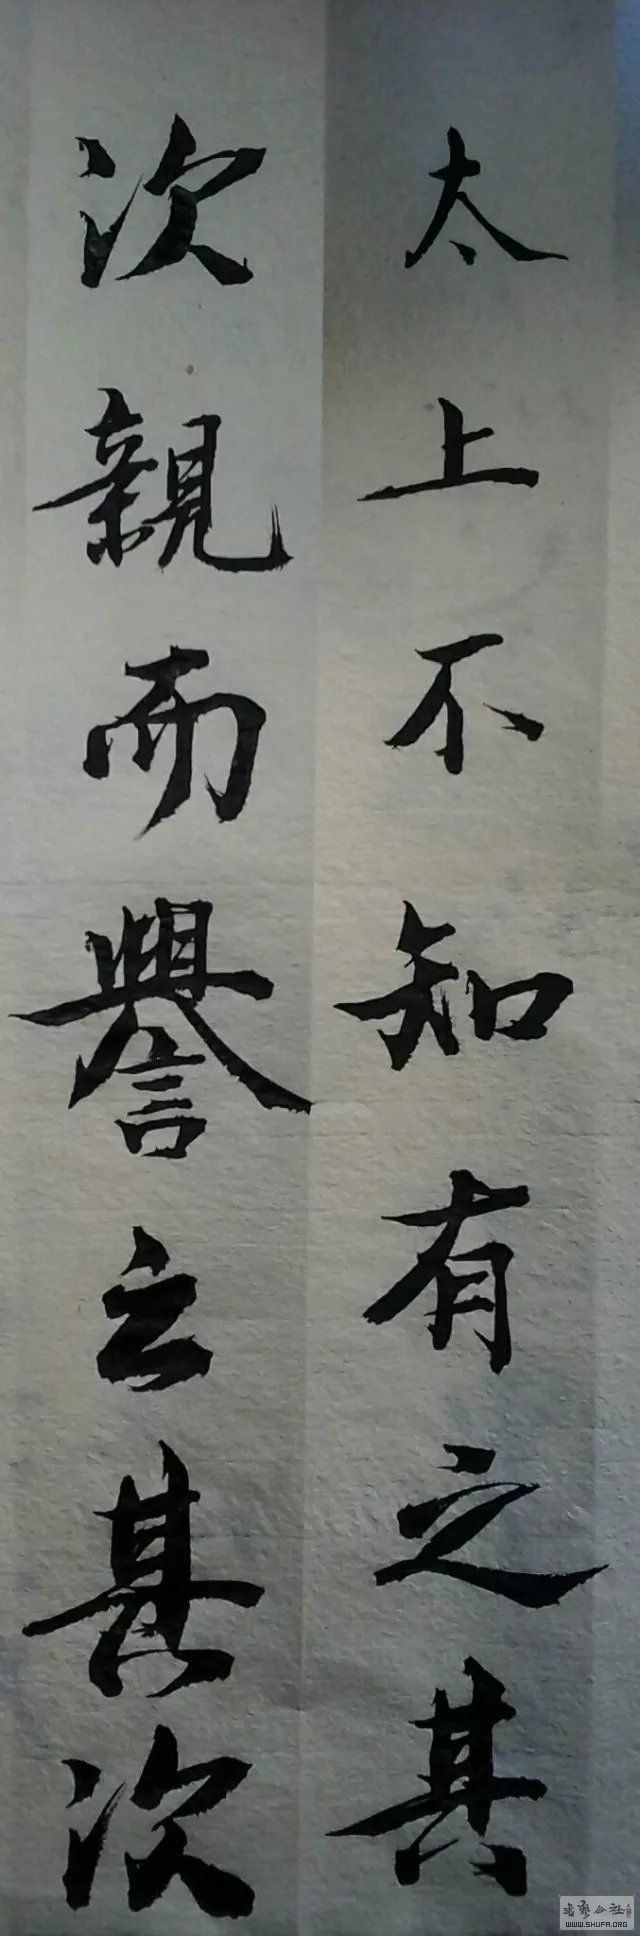 太上不知有之其
次親而譽之其次
WWW.SHUFA.ORG